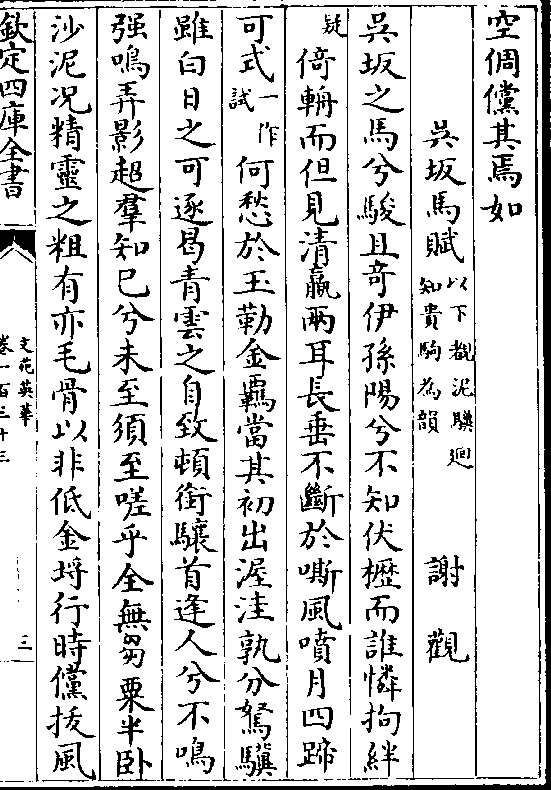 空倜儻其焉如
吳坂馬賦 以下泥驥迴知貴駒為韻 謝觀
吳坂之馬兮駿且竒伊孫陽兮不知伏櫪而誰憐拘絆
疑倚輈而但見清羸兩耳長垂不斷於嘶風噴月四蹄
可式一作試何愁於玉勒金羈當其初出渥洼孰分駑驥
雖白日之可逐曷青雲之自致頓銜驤首逢人兮不鳴
强鳴弄影超羣知已兮未至須至嗟乎全無芻粟半卧
沙泥况精靈之粗有亦毛骨以非低金埒行時儻拔風
欽定四庫全書
文苑英華
卷一百三十三
三